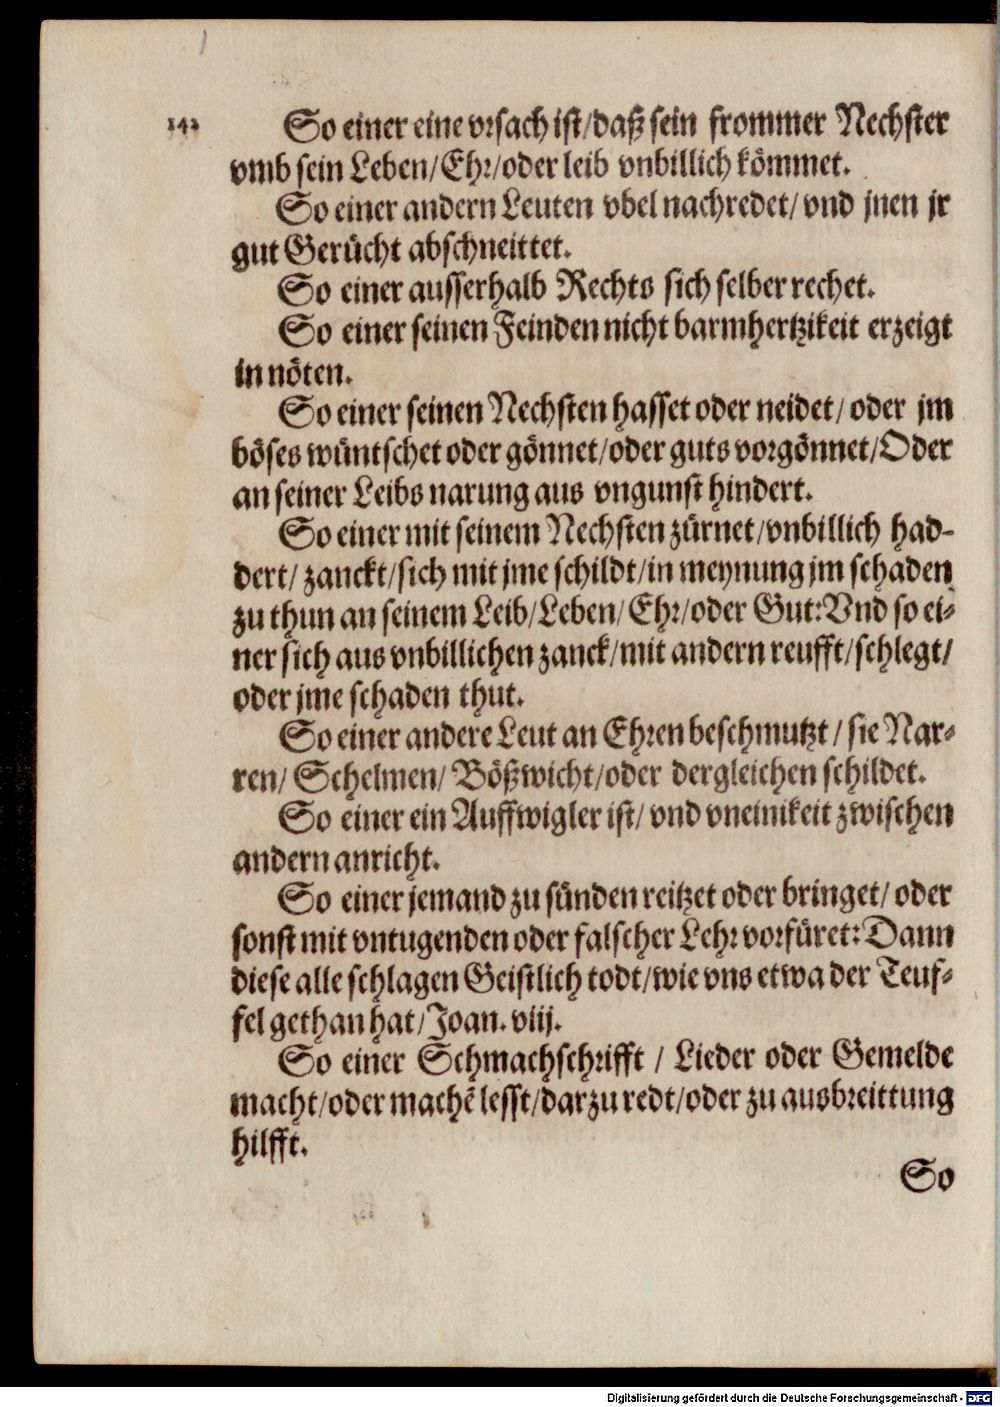 142
So einer eine vrsach ist/daß sein frommer Nechster
vmb sein Leben/Ehr/oder leib vnbillich kömmet.
So einer andern Leuten vbel nachredet/ vnd jnen jr
gut Gerücht abschneittet.
So einer ausserhalb Rechts sich selber rechet.
So einer seinen Feinden nicht barmhertzikeit erzeigt
in nöten.
So einer seinen Nechsten hasset oder neidet/ oder jm
böses wüntschet oder gönnet/oder guts vorgönnet/Oder
an seiner Leibs narung aus vngunst hindert.
So einer mit seinem Nechsten zürnet/vnbillich had-
dert/ zanckt/sich mit jme schildt/in meynung jm schaden
zu thun an seinem Leib/Leben/ Ehr/oder Gut:Vnd so ei-
ner sich aus vnbillichen zanck/mit andern reufft/schlegt/
oder jme schaden thut.
So einer andere Leut an Ehren beschmutzt / sie Nar-
ren/ Schelmen/ Bößwicht/oder dergleichen schildet.
So einer ein Auffwigler ist/ vnd vneinikeit zwischen
andern anricht.
So einer jemand zu sünden reitzet oder bringet/ oder
sonst mit vntugenden oder falscher Lehr vorfüret: Dann
diese alle schlagen Geistlich todt/wie vns etwa der Teuf-
fel gethan hat/Joan. viij.
So einer Schmachschrifft / Lieder oder Gemelde
macht/oder machẽ lesst/darzu redt/oder zu ausbreittung
hilfft.
So
Digitalisierung gefördert durch die Deutsche Forschungsgemeinschaft - DFG